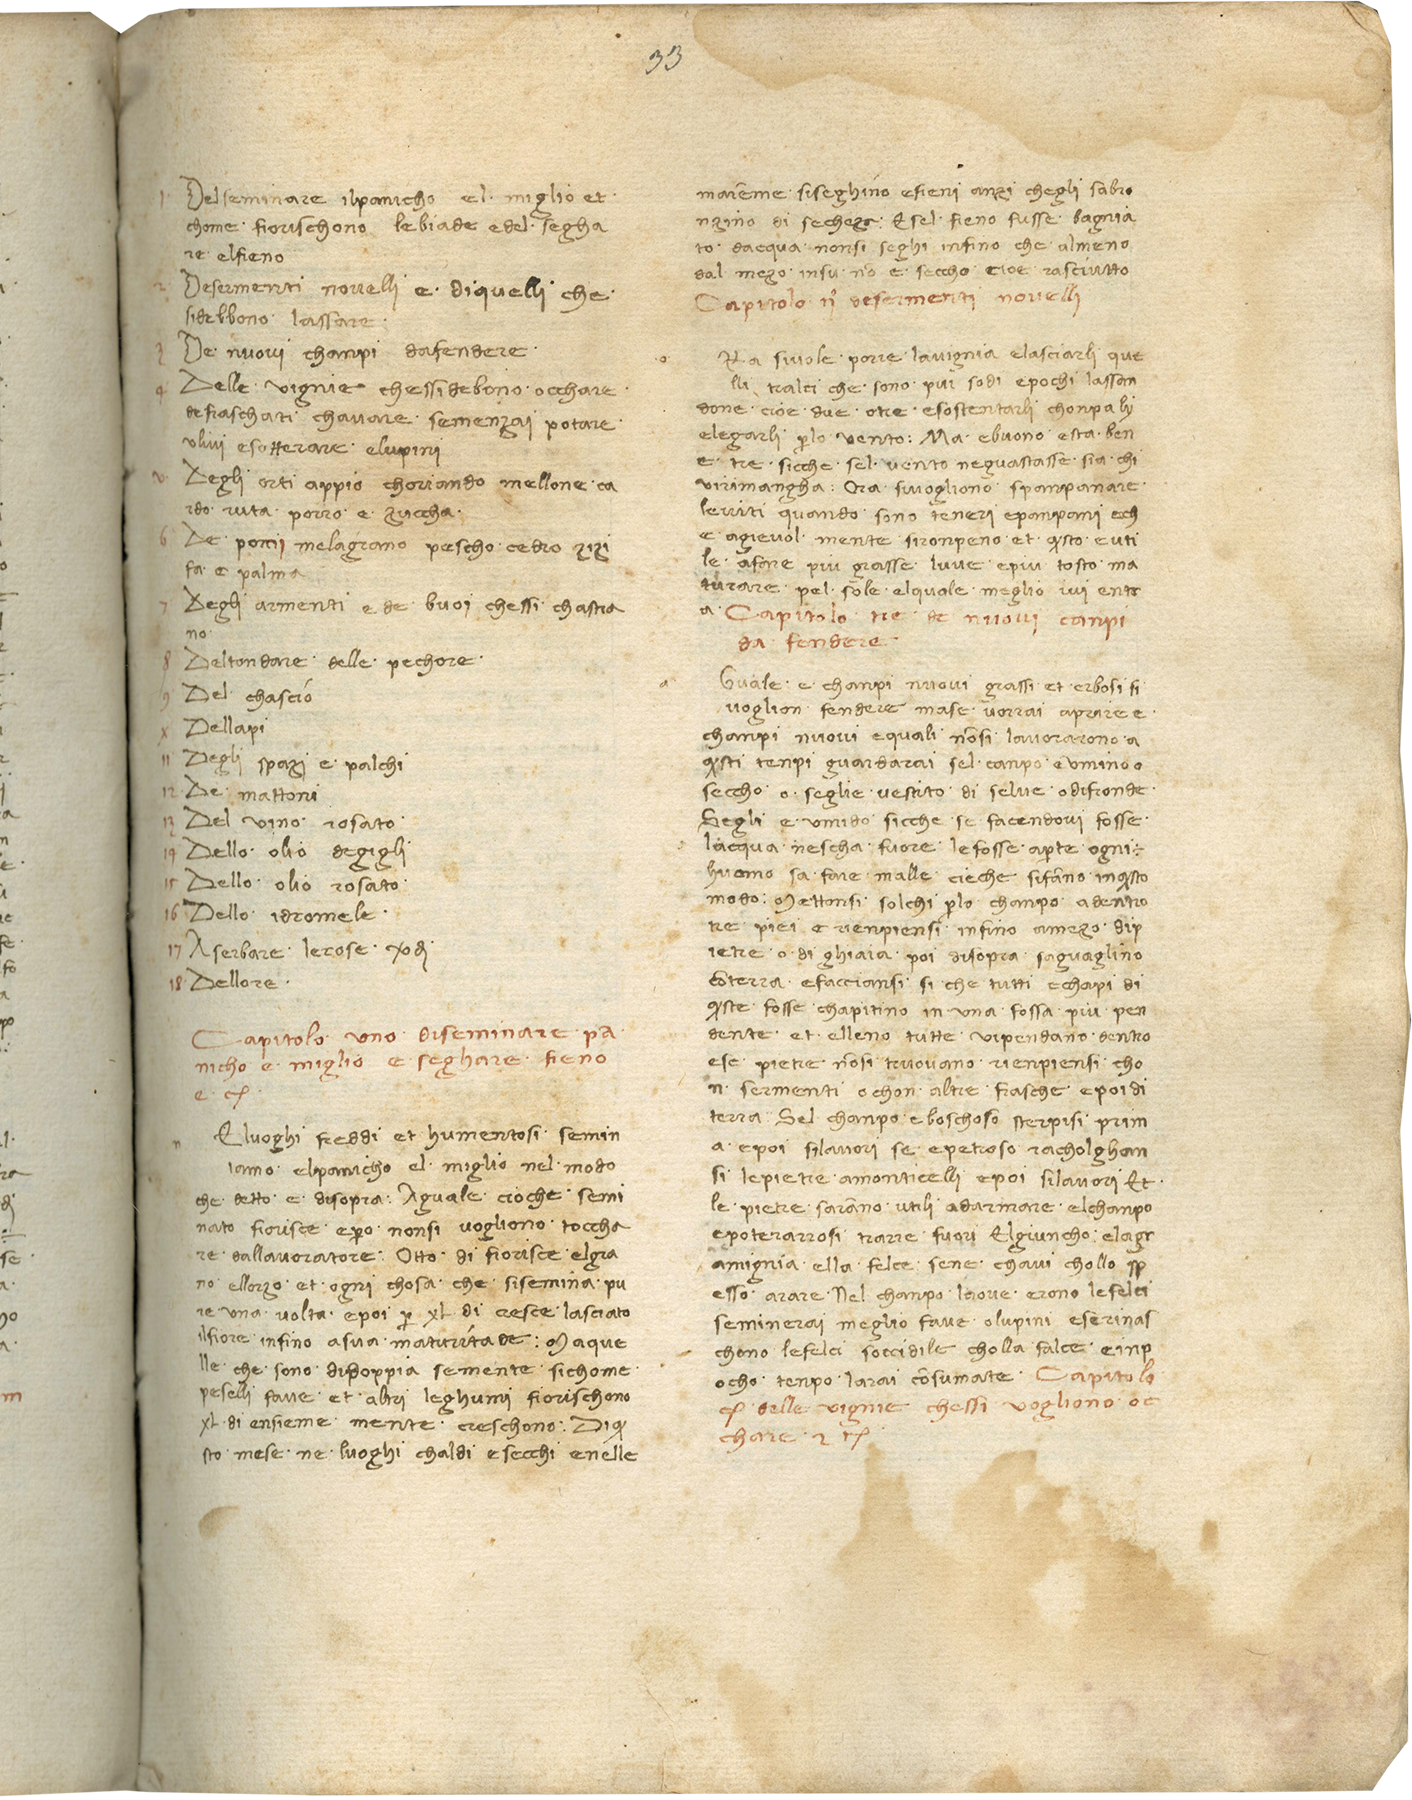 33
1 Del seminare il panicho el miglio et
chome fiorischono le biade e del segha
re el fieno
2 De sermenti novelli e di quelli che
si debbono lassare
3 De nuovi champi da fendere
4 Delle vignie chessi debono occhare
de fraschati chavare semenzai potare
ulivi e sotterare e lupini
v Degli orti appio choriando mellone ca
rdo ruta porro e zuccha
6 De pomi melagrano pescho cedro zizi
fa e palma
7 Degli armenti e de buoi chessi chastra
no
8 Del tondare delle pechore
9 Del chascio
x Dellapi
11 Degli spazi e palchi
12 De mattoni
13 Del vino rosato
14 Dello olio de gigli
15 Dello olio rosato
16 Dello idromele
17 A serbare le rose
18 Dellore
Capitolo uno di seminare pa
nicho e miglio e seghare fieno
e cͥ
n E luoghi freddi et humentosi semin
iamo el panicho el miglio nel modo
che detto e disopra: Aguale cio che semi
nato fiorisce e pero non si vogliono toccha
re dallavoratore: Otto di fiorisce el gra
no ellorzo et ogni chosa che si semina pu
re una volta e poi p xl di cresce lasciato
il fiore infino a sua maturitade: Ma que
lle che sono di doppia semente sichome
peselli fave et altri leghumi fiorischono
xl di ensieme mente creschono: Di q̄
sto mese ne luoghi chaldi e secchi e nelle
marēme si seghino e fieni anzi chegli sabro
nzino di sechezza: E sel fieno fusse bagnia
to dacqua non si seghi infino che almeno
dal mezo insu nō e seccho cioe rasciutto
Capitolo ij de sermenti novelli
o Ra si vole porre la vignia e lasciarli que
lli tralci che sono piu sodi e pochi lassan
done cioe due o tre e sostentarli chon pali
e legarli p lo vento: Ma e buono esta ben
e tre sicche sel vento ne guastasse sia chi
vi rimangha: Ora si vogliono spampanare
le viti quando sono teneri e panpani ech
e agievol mente si ronpeno et q̄sto e uti
le a fare piu grasse luve e piu tosto ma
turare pel sole el quale meglio vi entr
a Capitolo tre de nuovi canpi
da fendere
a Guale e champi nuovi grassi et erbosi si
voglion fendere ma se vorrai aprire e
champi nuovi e quali nō si lavorarono a
q̄sti tenpi guardarai sel canpo e umino o
seccho o seglie vestito di selve o di fronde
Segli e umido sicche se facendovi fosse
lacqua nescha fuore le fosse aperte ogni
huomo sa fare malle cieche si fāno in q̄sto
modo: Mettonsi solchi p lo champo adentro
tre piei e rienpiensi infino a mezo di p
ietre o di ghiaia poi di sopra saguaglino
cō terra e facciansi si che tutti e chapi di
q̄ste fosse chapitino in una fossa piu pen
dente et elleno tutte vi pendano dentro
e se pietre nō si truovano rienpiensi cho
n sermenti o chon altre frasche e poi di
terra Sel champo e boschoso sterpisi prim
a e poi si lavori se e petroso racholghan
si le pietre a monticelli e poi si lavori Et
le pietre sarāno utili ad armare el champo
e poterarrosi trarre fuori El giuncho e la gr
amignia ella felce sene chavi chollo sp
esso arare Nel champo laove erono le felci
seminerai meglio fave o lupini e se rinas
chono le felci soccidile cholla falce e in p
ocho tenpo larai cōsumate Capitolo
delle vignie chessi vogliono oc
chare